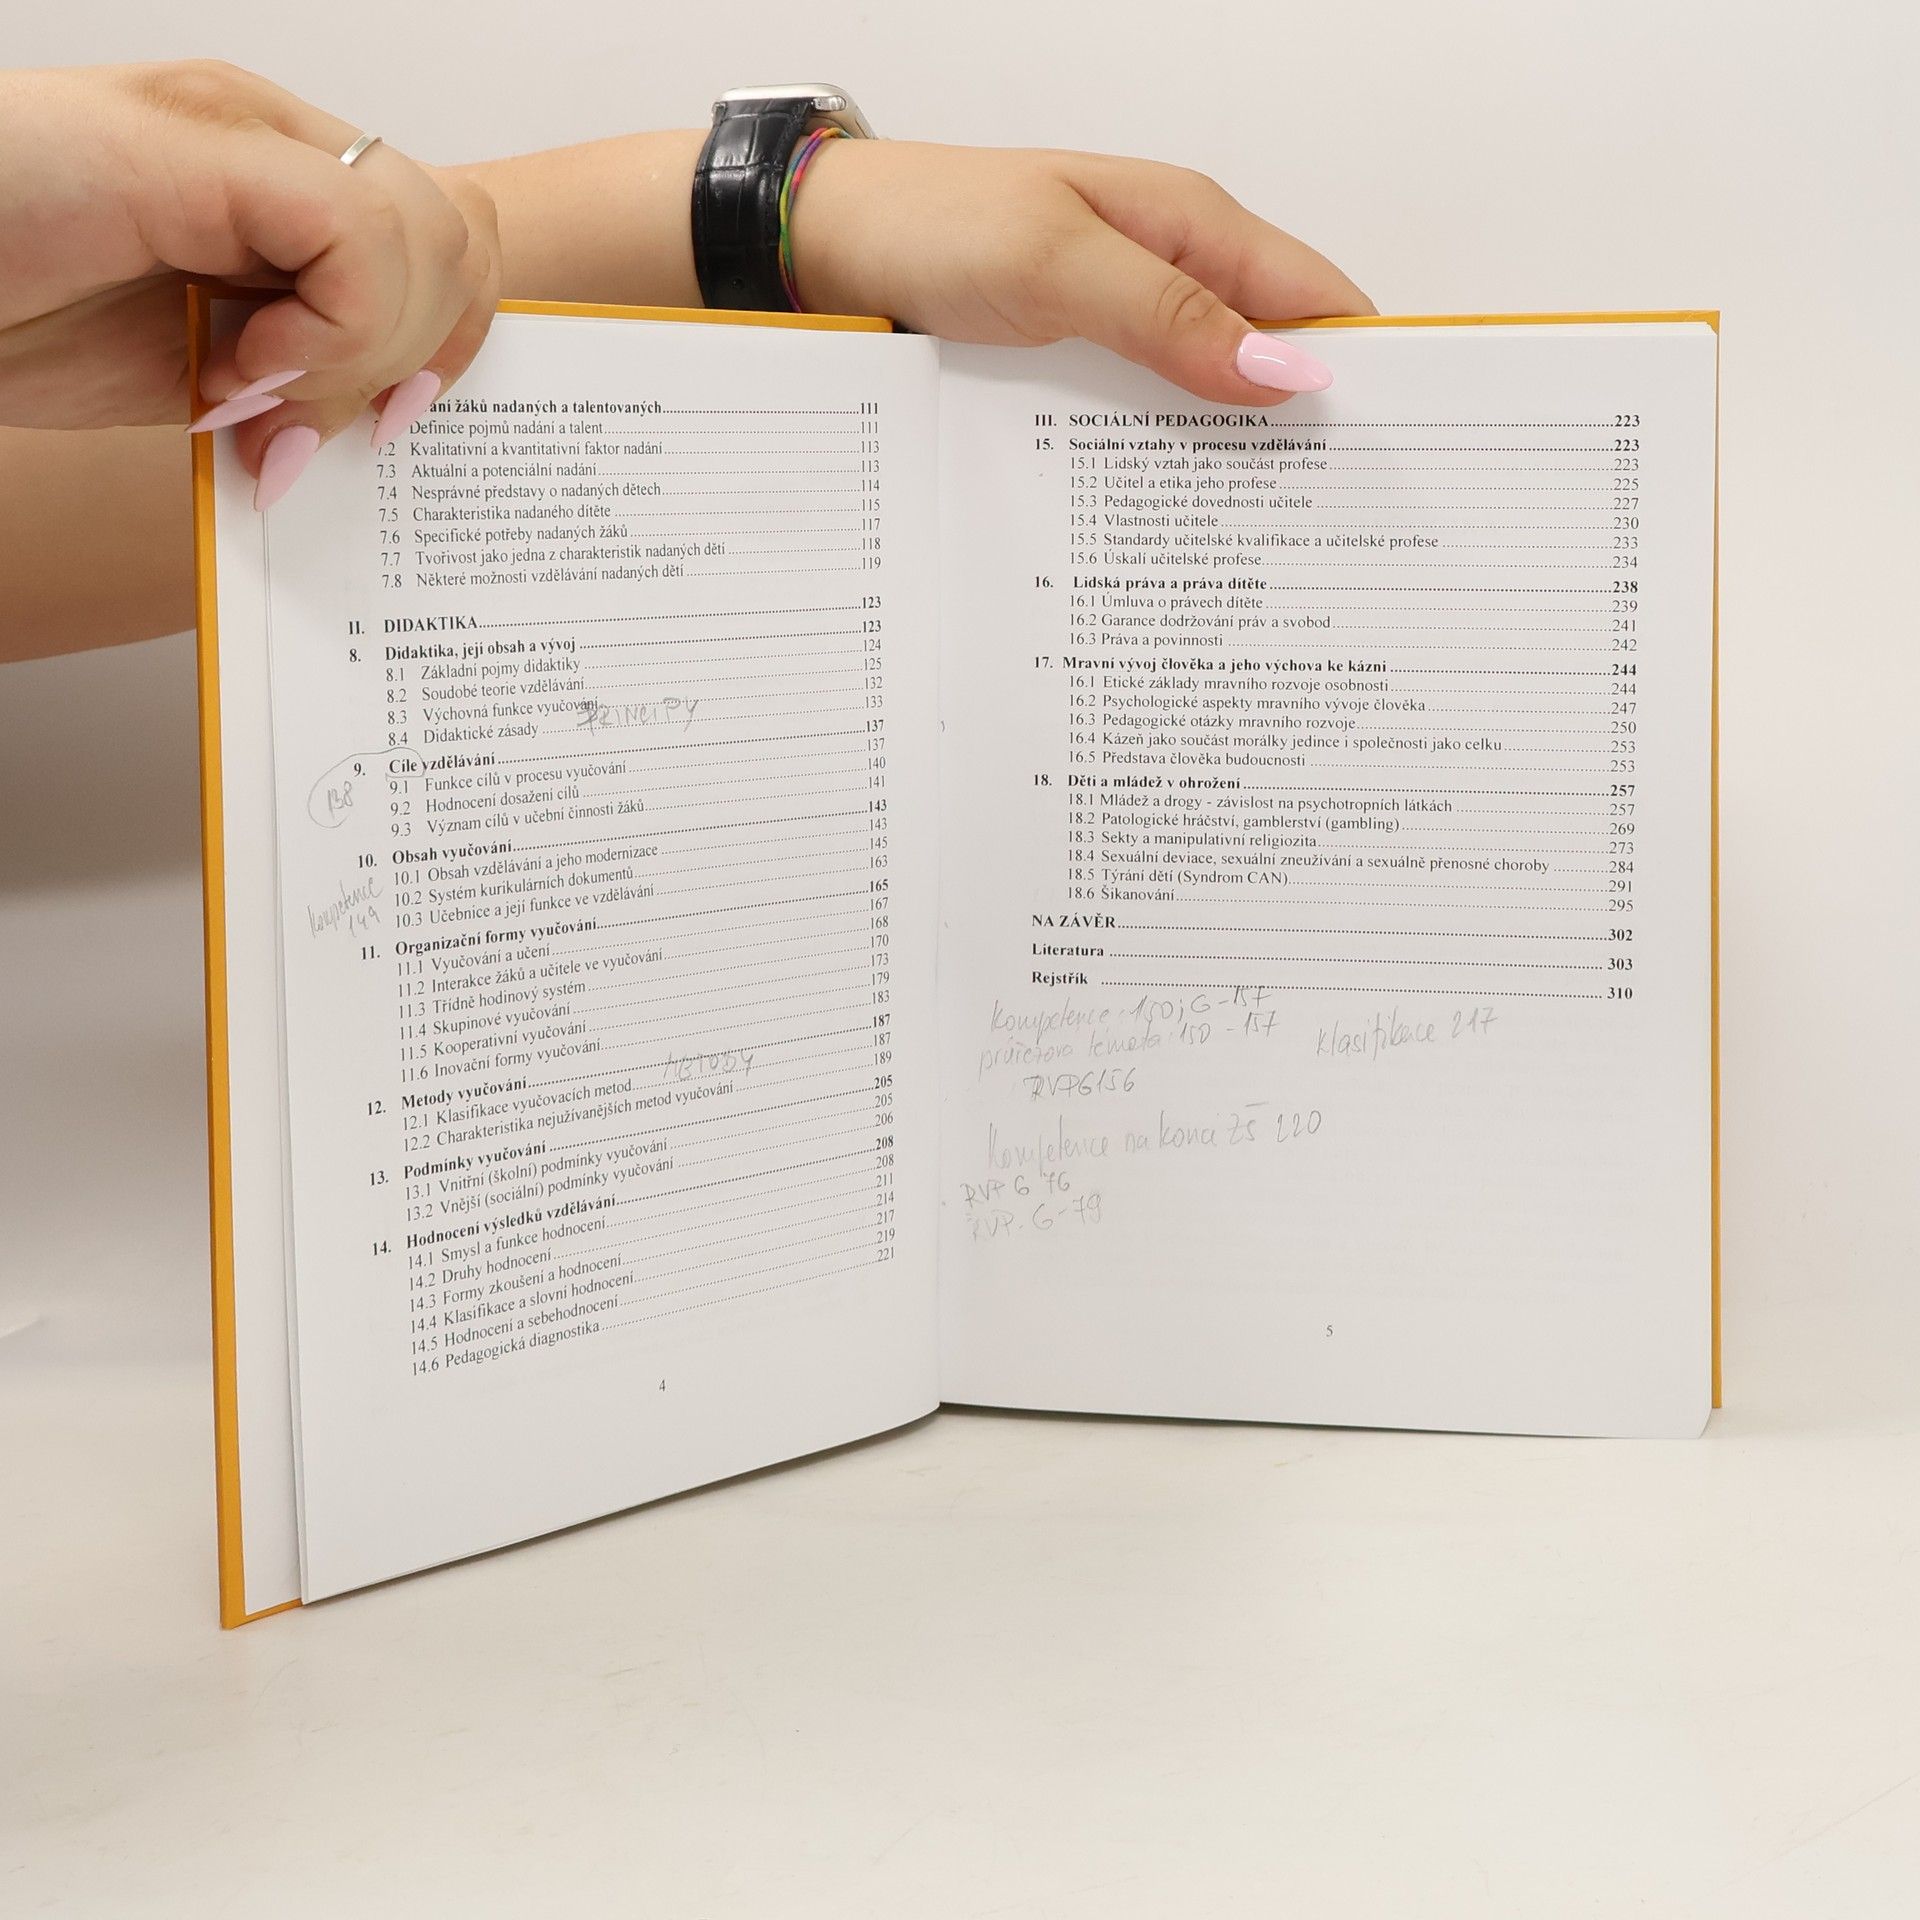 ání žáků nadaných a talentovaných....................111
Definice pojmů nadání a talent....................111
7.2 Kvalitativní a kvantitativní faktor nadání....................113
7.3 Aktuální a potenciální nadání....................113
7.4 Nesprávné představy o nadaných dětech....................114
7.5 Charakteristika nadaného dítěte....................115
7.6 Specifické potřeby nadaných žáků....................117
7.7 Tvořivost jako jedna z charakteristik nadaných dětí....................118
7.8 Některé možnosti vzdělávání nadaných dětí....................119
II. DIDAKTIKA....................123
8. Didaktika, její obsah a vývoj....................123
8.1 Základní pojmy didaktiky....................124
8.2 Soudobé teorie vzdělávání....................125
8.3 Výchovná funkce vyučování....................132
PRINCIPY
8.4 Didaktické zásady....................133
9. Cíle vzdělávání....................137
138
9.1 Funkce cílů v procesu vyučování....................137
9.2 Hodnocení dosažení cílů....................140
9.3 Význam cílů v učební činnosti žáků....................141
10. Obsah vyučování....................143
10.1 Obsah vzdělávání a jeho modernizace....................143
Kompetence
149
10.2 Systém kurikulárních dokumentů....................145
10.3 Učebnice a její funkce ve vzdělávání....................163
11. Organizační formy vyučování....................165
11.1 Vyučování a učení....................167
11.2 Interakce žáků a učitele ve vyučování....................168
11.3 Třídně hodinový systém....................170
11.4 Skupinové vyučování....................173
11.5 Kooperativní vyučování....................179
11.6 Inovační formy vyučování....................183
12. Metody vyučování....................187
METODY
12.1 Klasifikace vyučovacích metod....................187
12.2 Charakteristika nejužívanějších metod vyučování....................189
13. Podmínky vyučování....................205
13.1 Vnitřní (školní) podmínky vyučování....................205
13.2 Vnější (sociální) podmínky vyučování....................206
14. Hodnocení výsledků vzdělávání....................208
14.1 Smysl a funkce hodnocení....................208
14.2 Druhy hodnocení....................211
14.3 Formy zkoušení a hodnocení....................214
14.4 Klasifikace a slovní hodnocení....................217
14.5 Hodnocení a sebehodnocení....................219
14.6 Pedagogická diagnostika....................221
4
III. SOCIÁLNÍ PEDAGOGIKA....................223
15. Sociální vztahy v procesu vzdělávání....................223
15.1 Lidský vztah jako součást profese....................223
15.2 Učitel a etika jeho profese....................225
15.3 Pedagogické dovednosti učitele....................227
15.4 Vlastnosti učitele....................230
15.5 Standardy učitelské kvalifikace a učitelské profese....................233
15.6 Úskalí učitelské profese....................234
16. Lidská práva a práva dítěte....................238
16.1 Úmluva o právech dítěte....................239
16.2 Garance dodržování práv a svobod....................241
16.3 Práva a povinnosti....................242
17. Mravní vývoj člověka a jeho výchova ke kázni....................244
16.1 Etické základy mravního rozvoje osobnosti....................244
16.2 Psychologické aspekty mravního vývoje člověka....................247
16.3 Pedagogické otázky mravního rozvoje....................250
16.4 Kázeň jako součást morálky jedince i společnosti jako celku....................253
16.5 Představa člověka budoucnosti....................253
18. Děti a mládež v ohrožení....................257
18.1 Mládež a drogy - závislost na psychotropních látkách....................257
18.2 Patologické hráčství, gamblerství (gambling)....................269
18.3 Sekty a manipulativní religiozita....................273
18.4 Sexuální deviace, sexuální zneužívání a sexuálně přenosné choroby....................284
18.5 Týrání dětí (Syndrom CAN)....................291
18.6 Šikanování....................295
NA ZÁVĚR....................302
Literatura....................303
Rejstřík....................310
Kompetence: 150; G-157
průřezova témata: 150 - 157
Klasifikace 217
RVPG156
Kompetence na konci ZŠ 220
RVP G 76
RVP. G-79
5